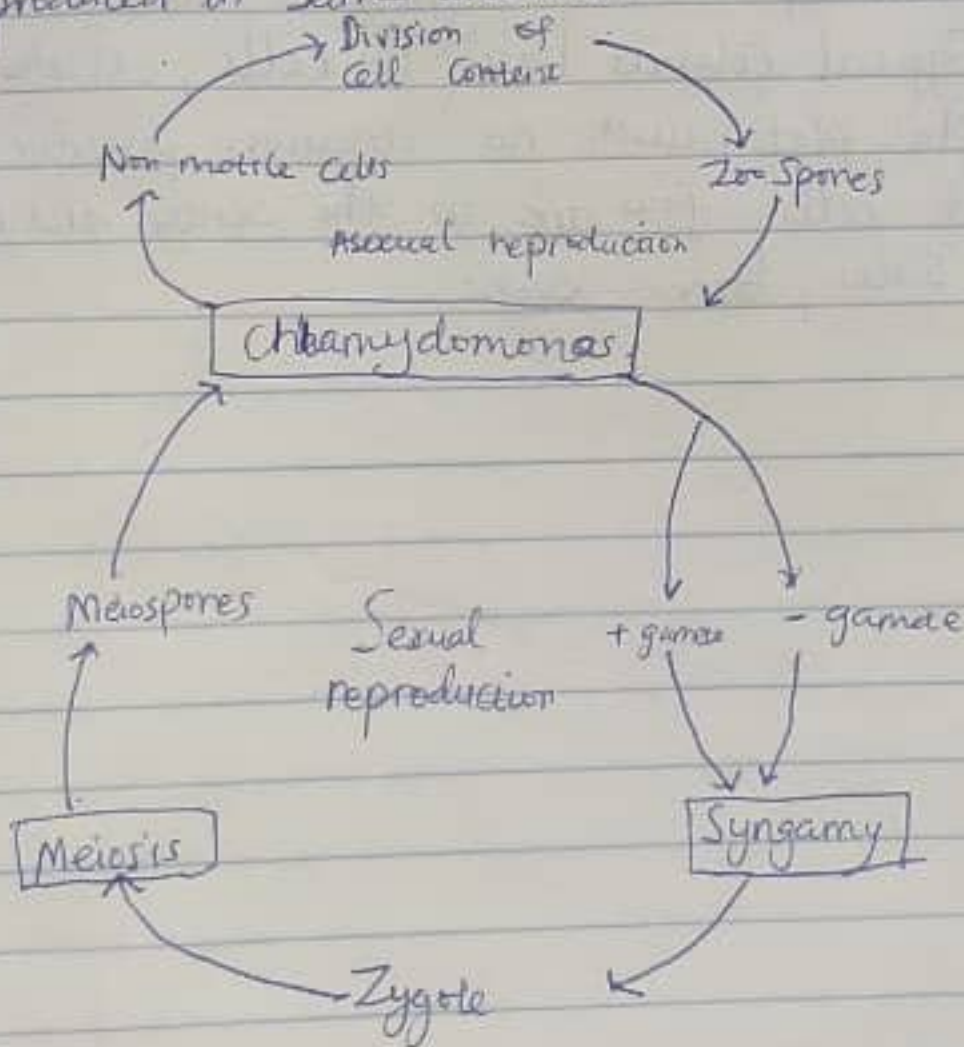 Division of
Cell Content
Non motile cells
Zoo Spores
Asexual reproduction
Chlamydomonas
Meiospores
Sexual
reproduction
+ gamete
- gamete
Meiosis
Syngamy
Zygote